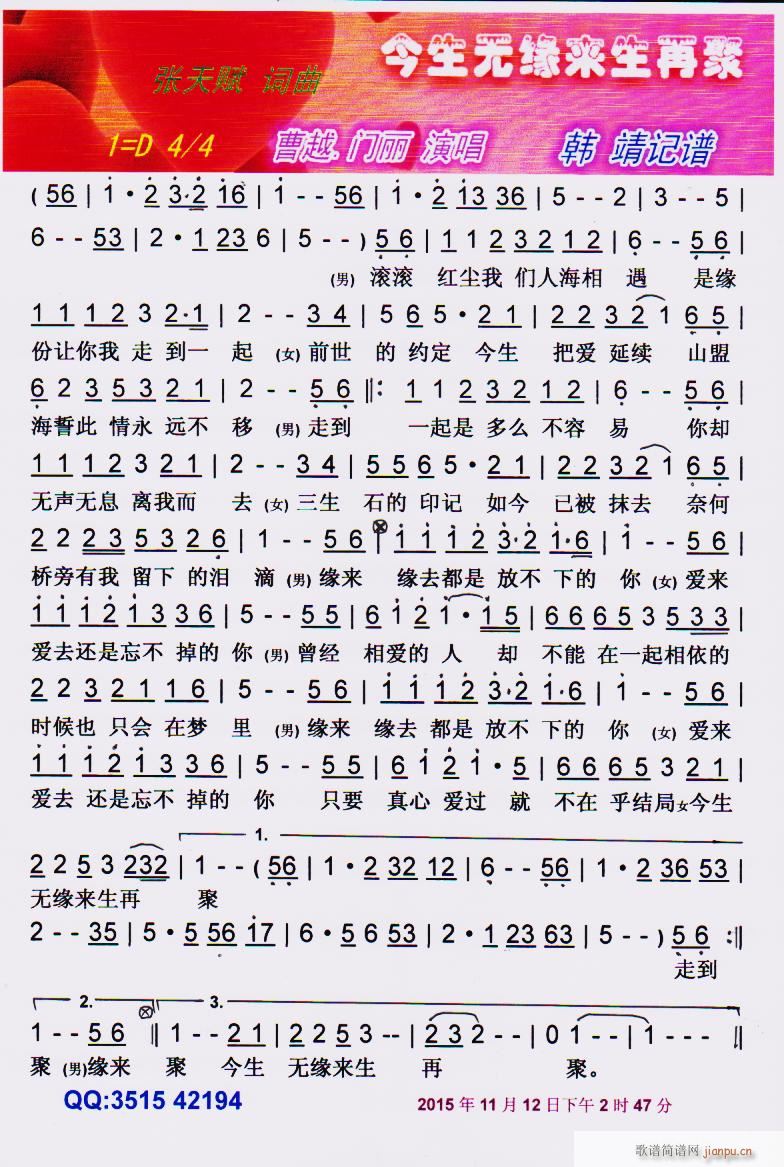 今生无缘来生再聚
张天赋 词曲
1=D 4/4 曹越.门丽 演唱 韩 靖记谱
( 56 | 1 · 2 3·2 16 | 1 - - 56 | 1 · 2 13 36 | 5 - - 2 | 3 - - 5 |
6 - - 53 | 2 · 1 23 6 | 5 - - ) 5 6 | 1 1 2 3 2 1 2 | 6 - - 5 6 |
(男) 滚滚 红尘我 们人海相 遇 是缘
1 1 1 2 3 2·1 | 2 - - 3 4 | 5 6 5 · 2 1 | 2 2 3 2 1 6 5 |
份让你我 走 到一 起 (女) 前世 的 约定 今生 把爱 延续 山盟
6 2 3 5 3 2 1 | 2 - - 5 6 ‖: 1 1 2 3 2 1 2 | 6 - - 5 6 |
海誓此 情永 远不 移 (男) 走到 一起是 多么 不容 易 你却
1 1 1 2 3 2 1 | 2 - - 3 4 | 5 5 6 5 · 2 1 | 2 2 3 2 1 6 5 |
无声无息 离我而 去 (女) 三生 石的 印记 如今 已被 抹去 奈何
2 2 2 3 5 3 2 6 | 1 - - 5 6 | 1 1 1 2 3·2 1·6 | 1 - - 5 6 |
桥旁有我 留下 的泪 滴 (男) 缘来 缘去都是 放不 下的 你 (女) 爱来
1 1 1 2 1 3 3 6 | 5 - - 5 5 | 6 1 2 1 · 1 5 | 6 6 6 5 3 5 3 3 |
爱去还是忘不 掉的 你 (男) 曾经 相爱的 人 却 不能 在一起相依的
2 2 3 2 1 1 6 | 5 - - 5 6 | 1 1 1 2 3·2 1·6 | 1 - - 5 6 |
时候也 只会 在梦 里 (男) 缘来 缘去 都是 放不 下的 你 (女) 爱来
1 1 1 2 1 3 3 6 | 5 - - 5 5 | 6 1 2 1 · 5 | 6 6 6 5 3 2 1 |
爱去 还是忘不 掉的 你 只要 真心 爱过 就 不在 乎结局女今生
1.
2 2 5 3 232 | 1 - - ( 56 | 1 · 2 32 12 | 6 - - 56 | 1 · 2 36 53 |
无缘来生再 聚
2 - - 35 | 5 · 5 56 17 | 6 · 5 6 53 | 2 · 1 23 63 | 5 - - ) 5 6 :‖
走到
2. 3.
1 - - 5 6 ‖ 1 - - 2 1 | 2 2 5 3 -- | 2 3 2 - - | 0 1 - - | 1 - - - ‖
聚 (男)缘来 聚 今生 无缘来生 再 聚。
QQ:3515 42194 2015 年 11 月 12 日下午 2 时 47 分
歌谱简谱网 jianpu.cn